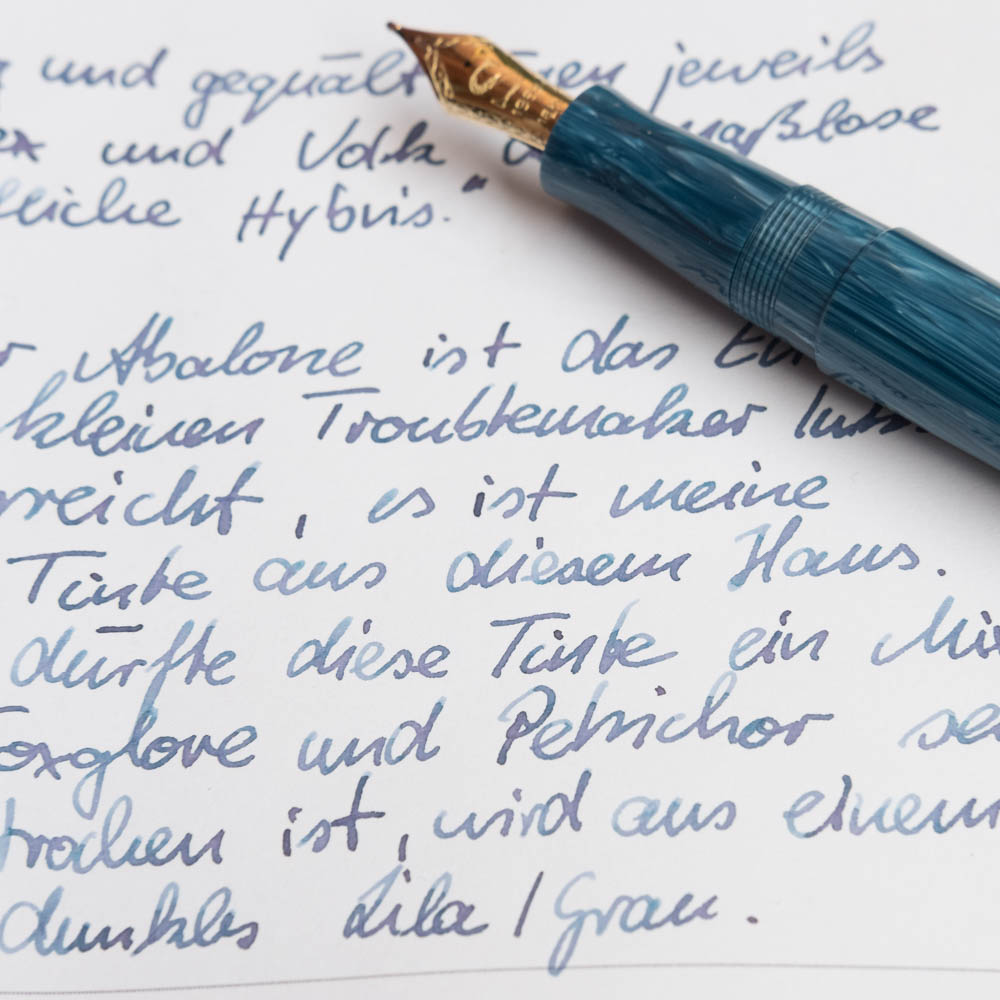 und gequält jeweils
und Volk maßlose
Hybris."
Abalone ist das
kleinen Troublemaker
rreicht, es ist meine
Tinte aus diesem Haus.
dürfte diese Tinte ein
Foxglove und Petrichor
trocken ist, wird aus einem
dunkles Lila / Grau.